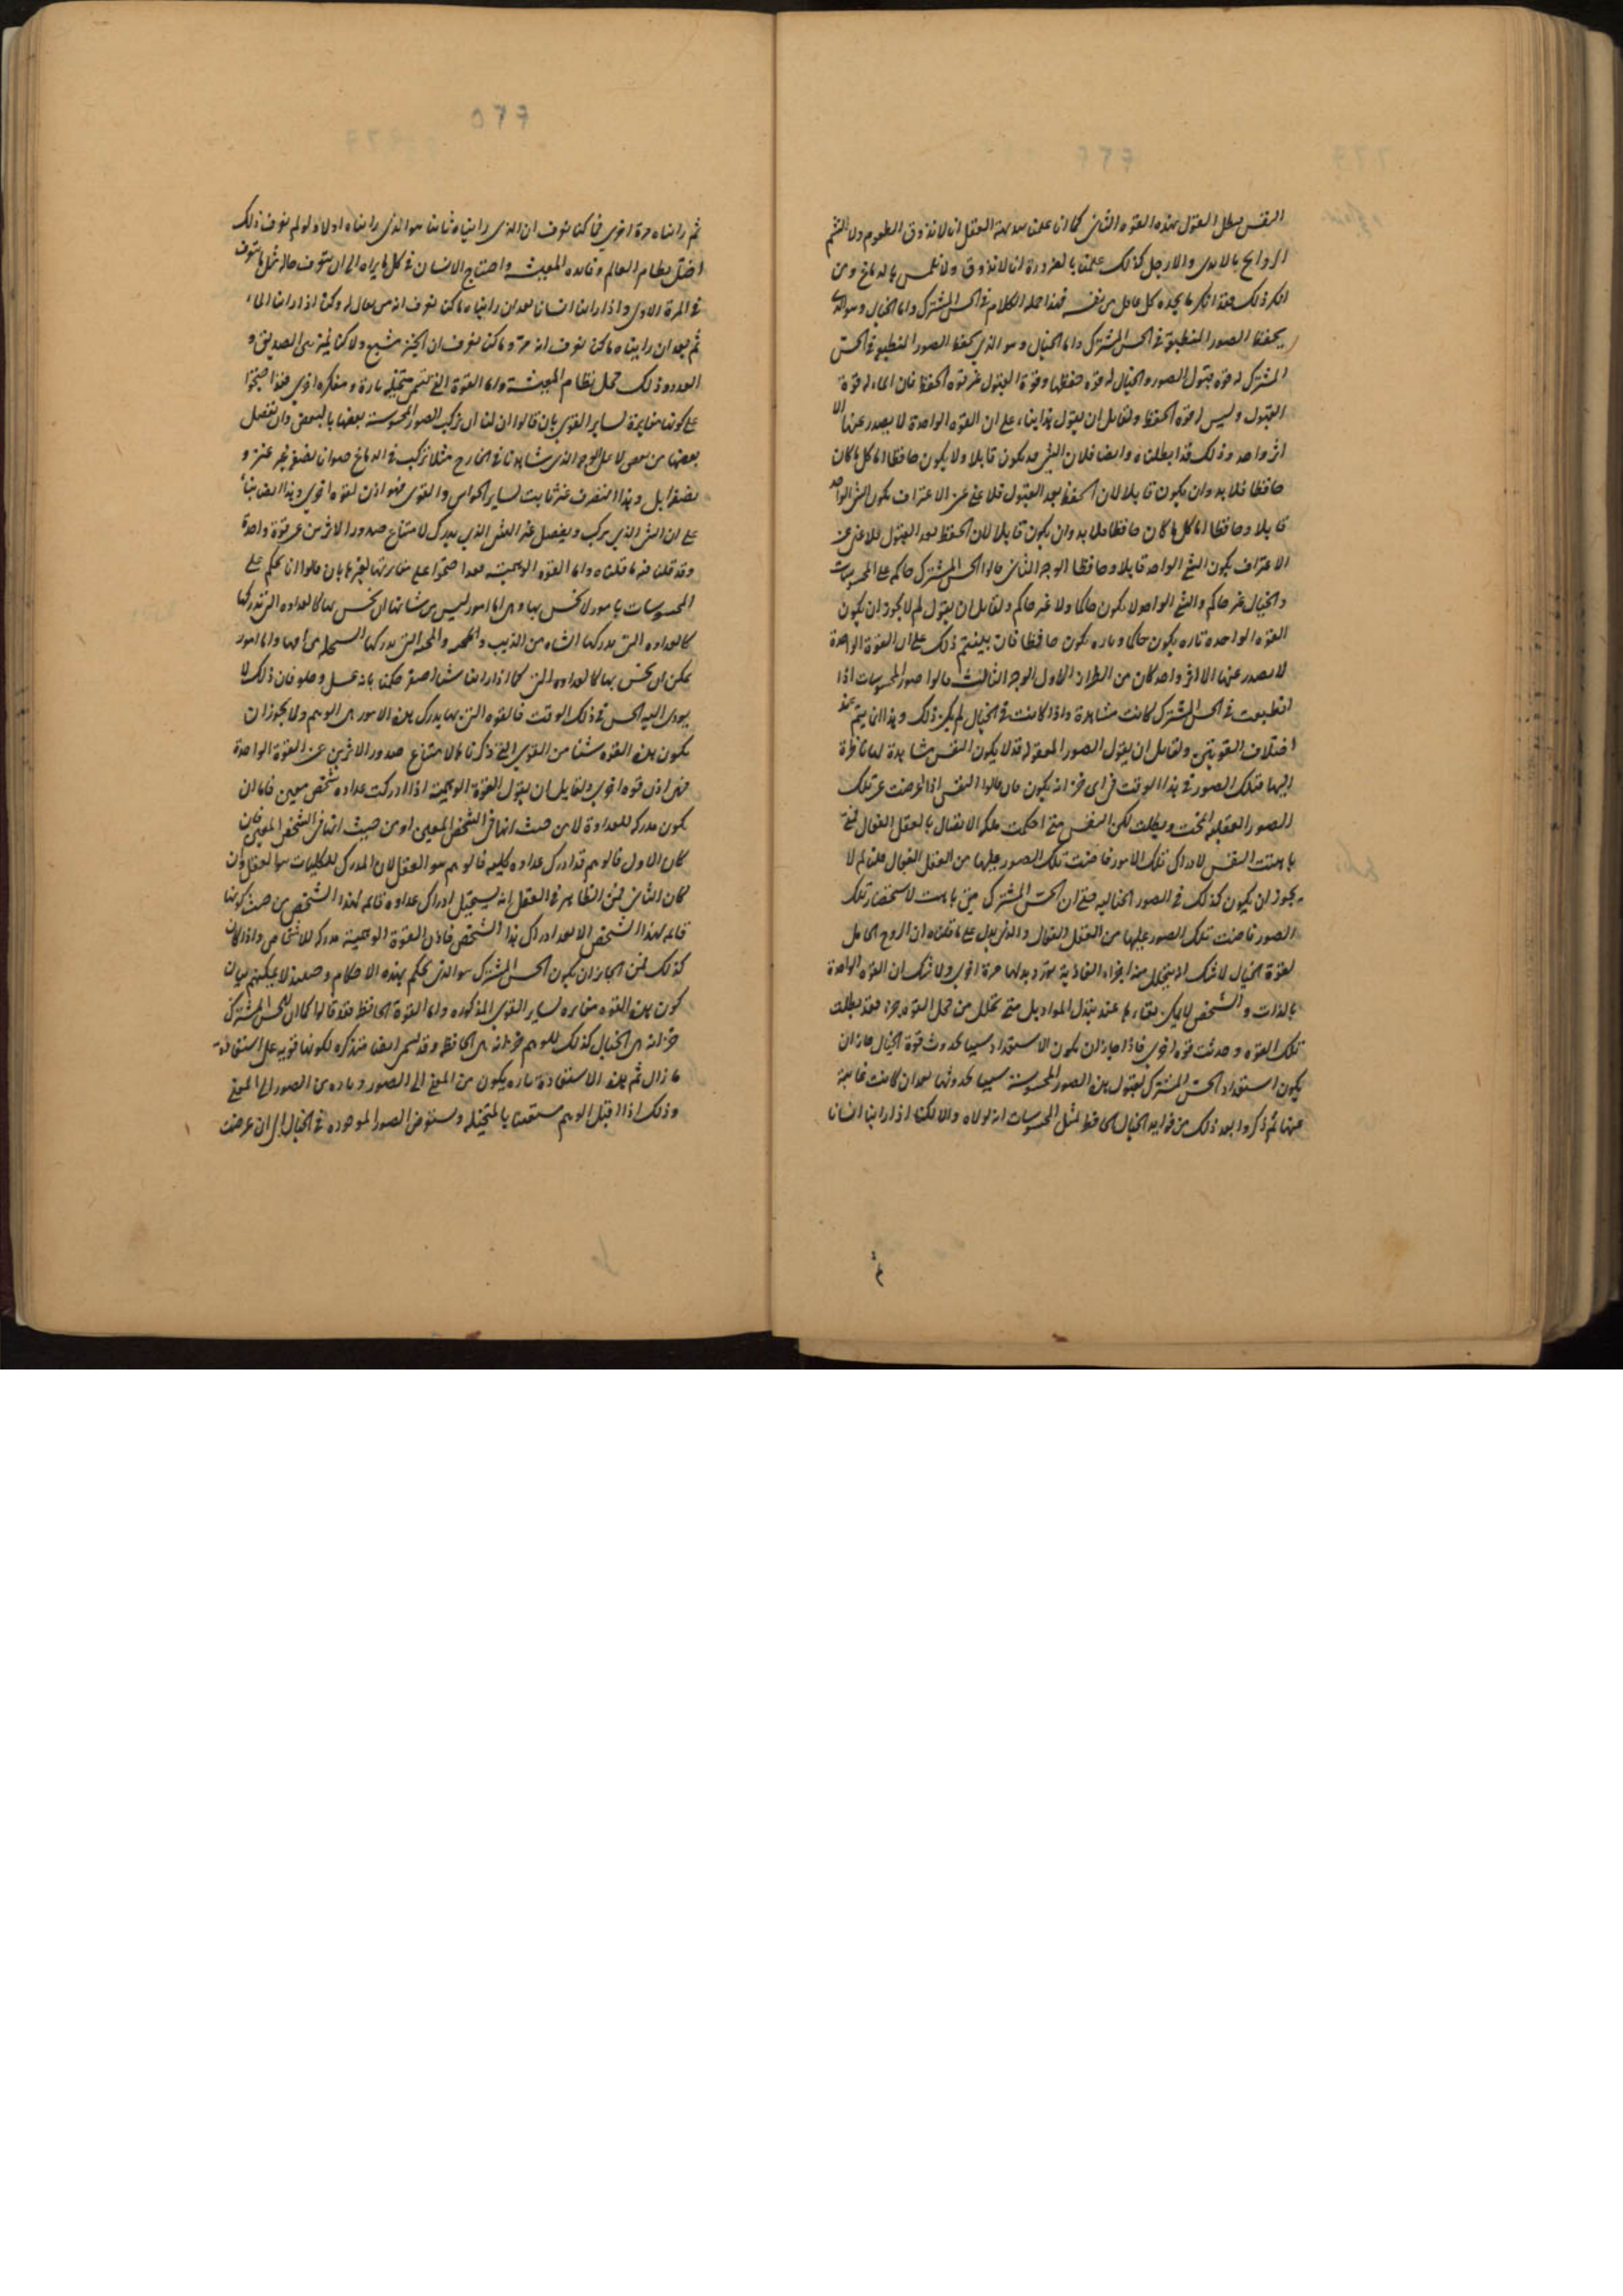 النفس بطل القول بهذه القوة الثانى كما انا علمنا ببديهة العقل انا لا نذوق الطعوم ولا نشم
الروايح بالايدى والارجل كذلك علمنا بالضرورة انا لا نذوق ولا نلمس بالدماغ ومن
انكر ذلك فقد انكر ما يجده كل عاقل من نفسه فهذا جملة الكلام فى الحس المشترك واما الخيال وهو الذى
يحفظ الصور المنطبقة فى الحس المشترك واما الخيال وهو الذى يحفظ الصور المنطبعة فى الحس
المشترك له قوة قبول الصور والخيال له قوة حفظها وقوة القبول غير قوة الحفظ فان الماء له قوة
القبول وليس له قوة الحفظ ولقايل ان يقول هذا بناء على ان القوة الواحدة لا يصدر عنها الا
اثر واحد وذلك قد ابطلناه وايضا فلان الشى قد يكون قابلا ولا يكون حافظا اما كل ما كان
حافظا فلا بد وان يكون قابلا لان الحفظ بعد القبول فلا غنى عن الاعتراف بكون الشى الواحد
قابلا وحافظا اما كل ما كان حافظا فلا بد وان يكون قابلا لان الحفظ بعد القبول فلا غنى عن
الاعتراف بكون الشى الواحد قابلا وحافظا الوجه الثانى قالوا الحس المشترك حاكم على المحسوسات
والخيال غير حاكم والشى الواحد لا يكون حاكما ولا غير حاكم ولقايل ان يقول لم لا يجوز ان يكون
القوة الواحدة تارة يكون حاكما وتارة يكون حافظا فان بينتم ذلك على ان القوة الواحدة
لا يصدر عنها الا اثر واحد كان من الطراز الاول الوجه الثالث قالوا صور المحسوسات اذا
انطبعت فى الحس المشترك كانت مشاهدة واذا كانت فى الخيال لم يكن ذلك وهذا انما يتم عند
اختلاف القوتين ولقايل ان يقول الصور المعقولة قد لا يكون النفس مشاهدة لها ناظرة
اليها فتلك الصور فى هذا الوقت فى اى خزانة يكون فان قالوا النفس اذا اعرضت عن تلك
الصور العقلية انمحت وبطلت لكن النفس متى احكمت ملكة الاتصال بالعقل الفعال فمتى
تاهبت النفس لادراك تلك الامور فاضت تلك الصور عليها من العقل الفعال قلنا لم لا
يجوز ان يكون كذلك فى الصور الخيالية حتى ان الحس المشترك متى تاهب لاستحضار تلك
الصور فاضت تلك الصور عليها من العقل الفعال والذى يدل على ما قلناه ان الروح الحامل
لقوة الخيال لا شك انه يتحلل منها اجزاء الغاذية تورد بدلها مرة اخرى ولا شك ان القوة الواحدة
بالذات والشخص لا يمكن بقاءها عند تبدل المواد بل متى تحلل من محل القوة جزء فقد بطلت
تلك القوة وحدثت قوة اخرى فاذا جاز ان يكون الاستعداد سببا لحدوث قوة الخيال جاز ان
يكون استعداد الحس المشترك لقبول هذه الصور المحسوسة سببا لحدوثها بعد ان كانت غايبة
عنها ثم ذكروا بعد ذلك من فوايد الخيال الحافظ لمثل المحسوسات انه لولاه والا لكنا اذا راينا انسانا
ثم رايناه مرة اخرى فما كنا نعرف ان الذى رايناه ثانيا هو الذى رايناه اولا ولو لم نعرف ذلك
اختل نظام العالم وفائدة المعيشة واحتاج الانسان فى كل ما يراه الى ان يتعرف حاله مثل ما تعرف
فى المرة الاولى واذا راينا انسانا بعد ان رايناه ما كنا نعرف انه من يقال له وكنا اذا راينا الماء
ثم بعد ان رايناه ما كنا نعرف انه مرو وما كنا نعرف ان الخبز مشبع ولا كنا نميز بين الصديق و
العدو وذلك مخل نظام المعيشة واما القوة التى تسمى متخيلة تارة ومفكرة اخرى فقد احتجوا
على كونها مغايرة لساير القوى بان قالوا ان لنا ان نركب الصور المحسوسة بعضها بالبعض وان نفصل
بعضها من بعض لا على الوجه الذى شاهدناه فى الخارج مثلا نركب فى الدماغ حيوان نصفه بحر عنز و
نصفه ابل وهذا التصرف غير ثابت لساير الحواس والقوى فهو اذن لقوة اخرى وهذا ايضا بناء
على ان الشى الذى يركب ويفصل غير الشى الذى يدرك لامتناع صدور الاثرين عن قوة واحدة
وقد قلنا فيه ما قلناه واما القوة الوهمية فقد احتجوا على مغايرتها لغيرها بان قالوا انا نحكم على
المحسوسات بامور لا نحس بها وهى اما امور ليس من شانها ان نحس بها كالعداوة التى تدركها
كالعداوة التى تدركها الشاة من الذيب والمحبة التى تدركها السخلة من امها واما امور
يمكن ان نحس بها كالعداوة التى كما اذا راينا شيئا اصفر حكمنا بانه عسل وحلو فان ذلك لا
يودى اليه الحس فى ذلك الوقت فالقوة التى بها يدرك هذه الامور هى الوهم ولا يجوز ان
يكون هذه القوة شيئا من القوى التى ذكرناها لامتناع صدور الاثرين عن القوة الواحدة
فهى اذن قوة اخرى ولقايل ان يقول القوة الوهمية اذا ادركت عداوة شخص معين فاما ان
يكون مدركه للعداوة لا من حيث انها فى الشخص المعين او من حيث انها فى الشخص المعين فان
كان الاول فالوهم قد ادرك عداوة كلية فالوهم هو العقل لان المدرك للكليات هو العقل وان
كان الثانى فمن الظاهر فى العقل انه يستحيل ادراك عداوة قايمة لهذا الشخص من حيث كونها
قايمة لهذا الشخص الا بعد ادراك هذا الشخص فاذن القوة الوهمية مدركة للاشخاص واذا كان
كذلك فمن الجايز ان يكون الحس المشترك هو الذى يحكم بهذه الاحكام وحينئذ لا يمكنهم بيان
كون هذه القوة مغايرة لساير القوى المذكورة واما القوة الحافظة فقد قالوا كما ان للحس المشترك
خزانة هى الخيال كذلك للوهم خزانة هى الحافظة وقد تسمى ايضا متذكرة لكونها قوية على استعادة
ما زال ثم هذه الاستعادة تارة يكون من المعنى الى الصور وتارة من الصور الى المعنى
وذلك اذا اقبل الوهم مستعينا بالمتخيلة ويستعرض الصور الموجودة فى الخيال الى ان عرضت